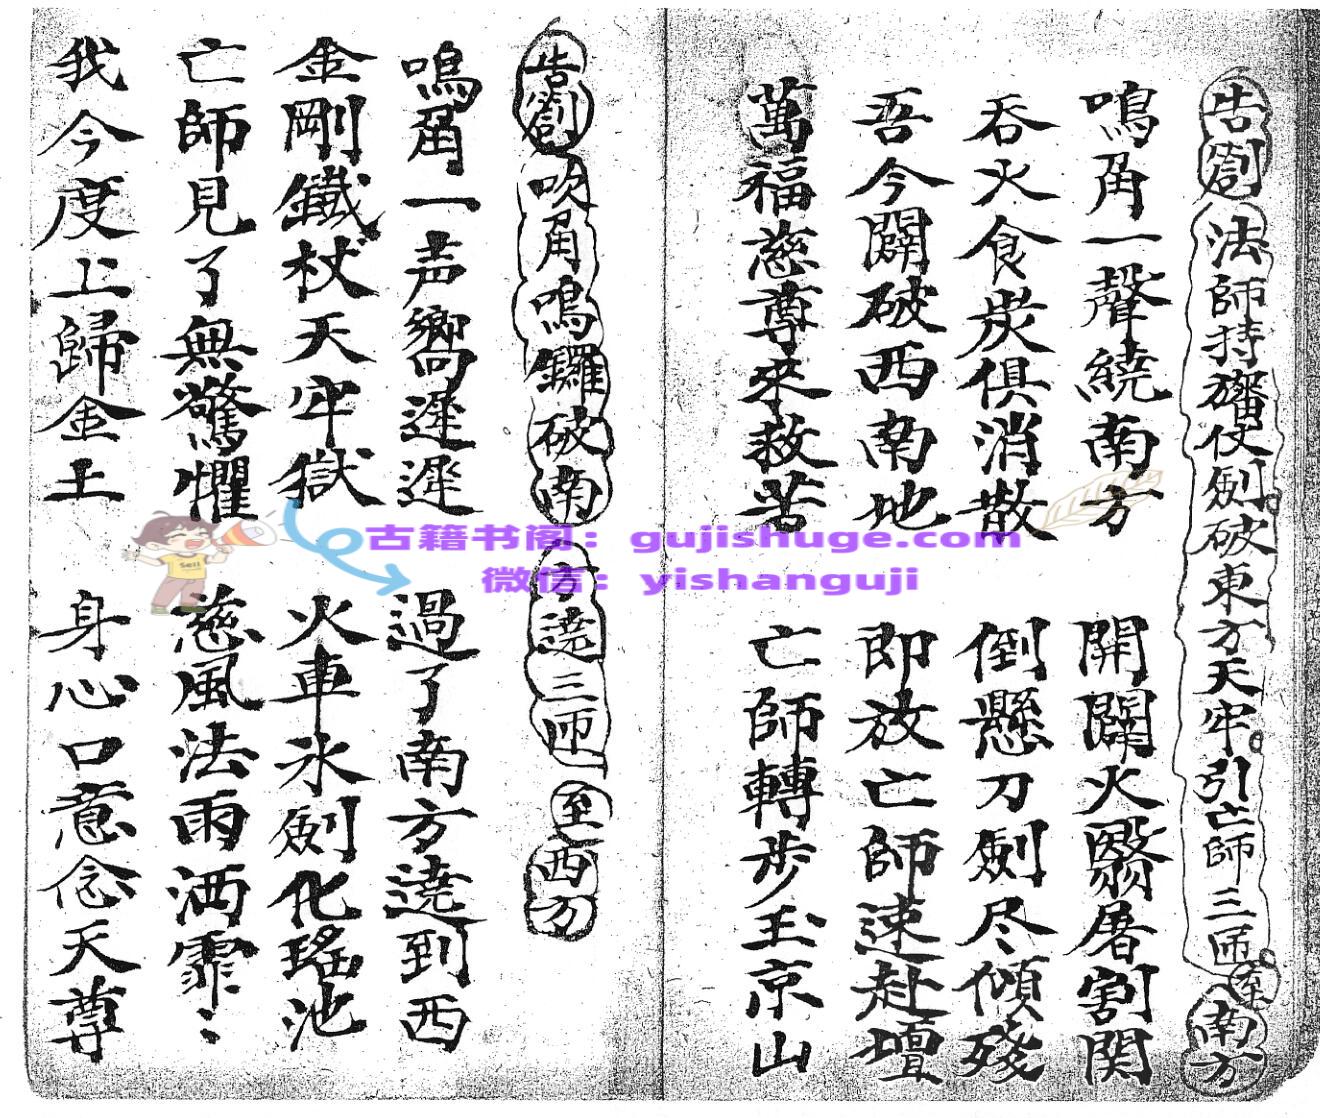 告劄法師持旛仗劍破東方天牢引亡師三匝至南方
鳴角一聲繞南方 開闢火翳屠割関
吞火食炭俱消散 倒懸刀劍尽傾殘
吾今闢破西南地 即放亡師速赴壇
萬福慈尊來救苦 亡師轉步玉京山
告劄吹角鳴鑼破南方遶三匝至西方
鳴角一声嚮遲遲 過了南方遶到西
金剛鐵杖天牢獄 火車氷劍化瑤池
亡師見了無驚懼 慈風法雨洒霏〻
我今度上歸金土 身心口意念天尊
古籍书阁：gujishuge.com
微信：yishanguji